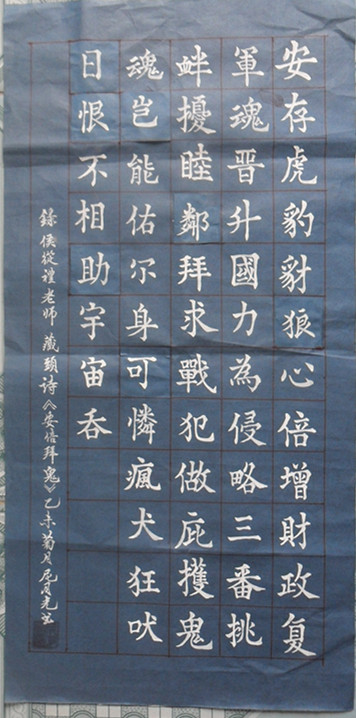 安存虎豹豺狼心倍增財政复
軍魂晋升國力為侵略三番挑
衅擾睦鄰拜求戰犯做庇擭鬼
魂岂能佑尔身可憐瘋犬狂吠
日恨不相助宇宙吞
錄侯從禮老师藏頭诗《安倍拜鬼》乙未菊月